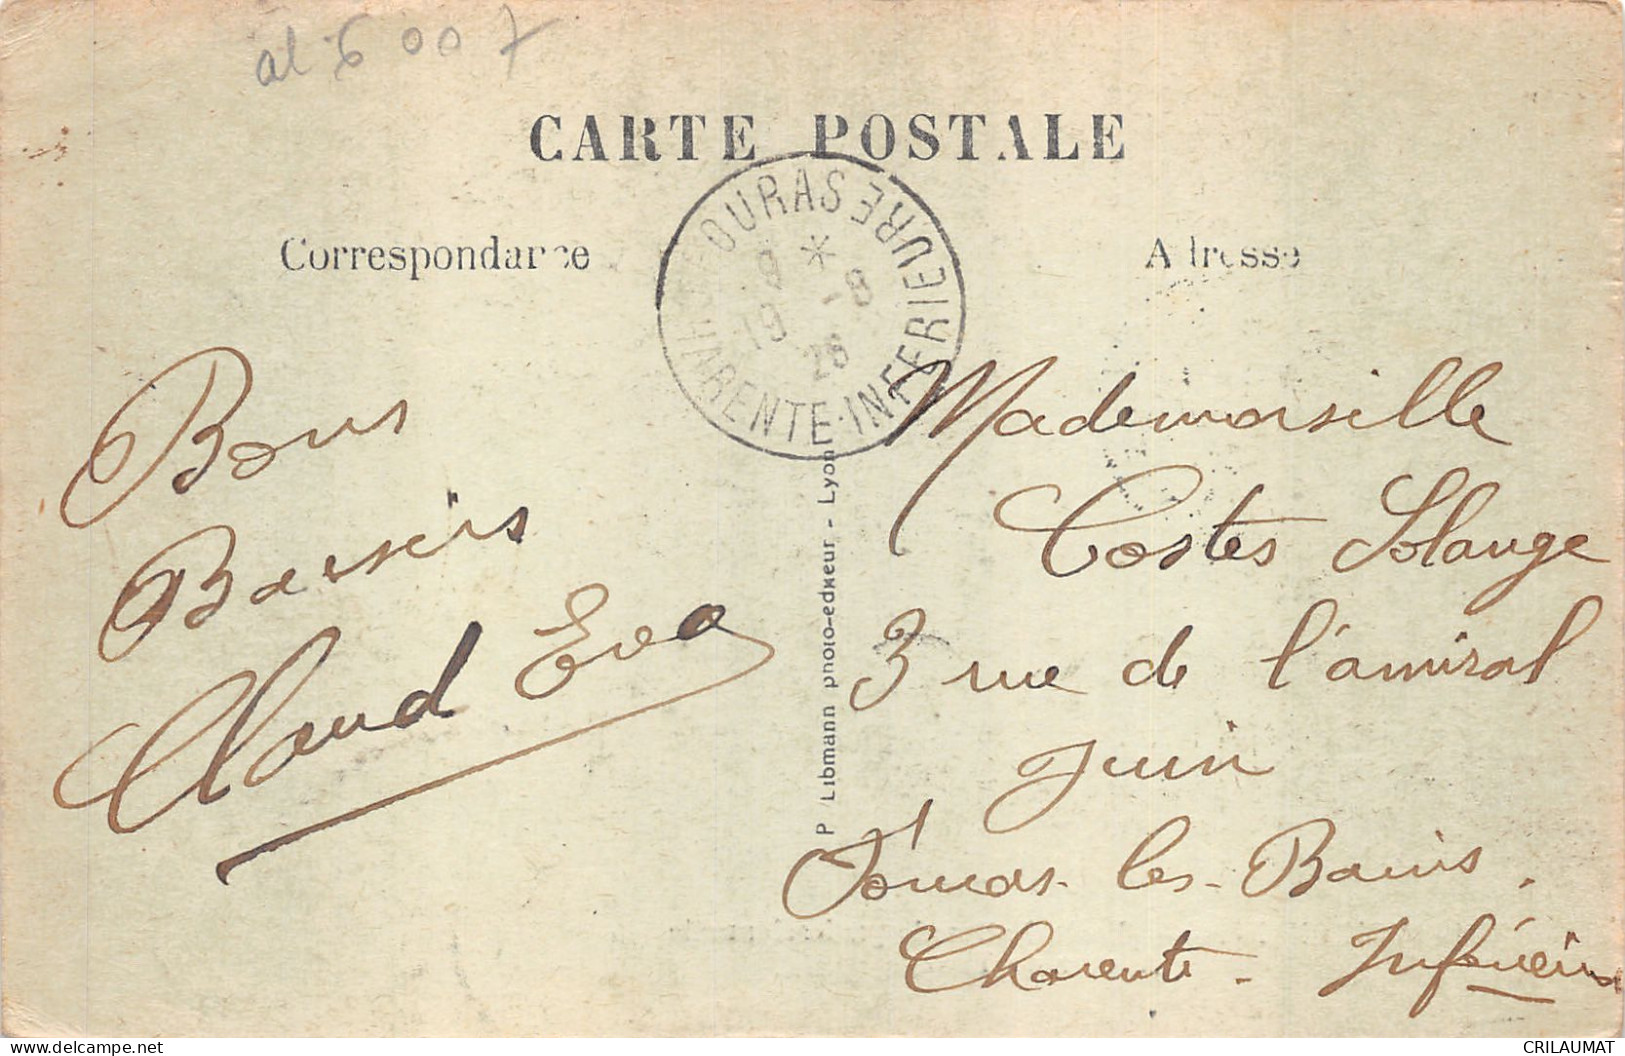 al 6 00 7
CARTE POSTALE
Correspondance
Adresse
FOURAS
CHARENTE-INFERIEURE
19 28
-8
Bons
Baisers
Claud Eva
P Libmann photo-editeur - Lyon
Mademoiselle
Costes Solange
3 rue de l'amiral
Juin
Fouras-les-Bains.
Charente-Inférieure
delcampe.net
CRILAUMAT